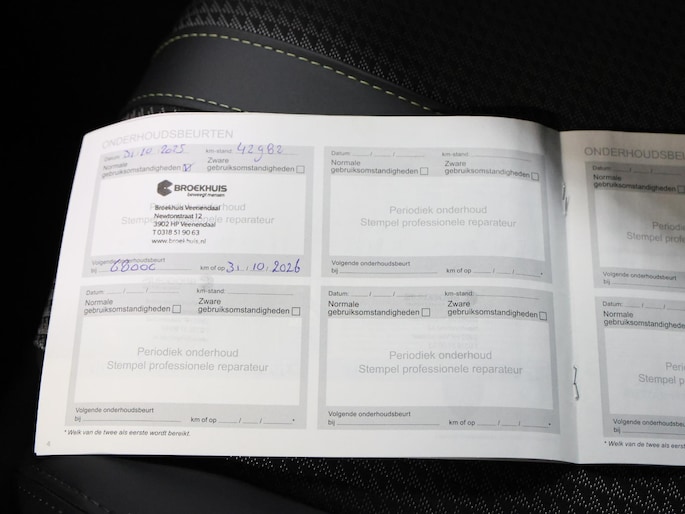 ONDERHOUDSBEURTEN
Datum: 31.10.2025 km-stand: 42982
Normale gebruiksomstandigheden Zware gebruiksomstandigheden
BROEKHUIS
beweegt mensen
Broekhuis Veenendaal
Newtonstraat 12
3902 HP Veenendaal
T 0318 51 90 63
www.broekhuis.nl
Periodiek onderhoud
Stempel professionele reparateur
Volgende onderhoudsbeurt
bij 68000 km of op 31.10.2026
Datum: / / km-stand:
Normale gebruiksomstandigheden Zware gebruiksomstandigheden
Periodiek onderhoud
Stempel professionele reparateur
Volgende onderhoudsbeurt
bij km of op / / *
Datum: / / km-stand:
Normale gebruiksomstandigheden Zware gebruiksomstandigheden
Periodiek onderhoud
Stempel professionele reparateur
Volgende onderhoudsbeurt
bij km of op / / *
Datum: / / km-stand:
Normale gebruiksomstandigheden Zware gebruiksomstandigheden
Periodiek onderhoud
Stempel professionele reparateur
Volgende onderhoudsbeurt
bij km of op / / *
* Welk van de twee als eerste wordt bereikt.
4
ONDERHOUDSBEU
Datum: / /
Normale
gebruiksomstandigheden
Period
Stempel pro
Volgende onderhoudsbeurt
bij
Datum: / /
Normale
gebruiksomstandigheden
Period
Stempel p
Volgende onderhoudsbeurt
bij
* Welk van de twee als eerste